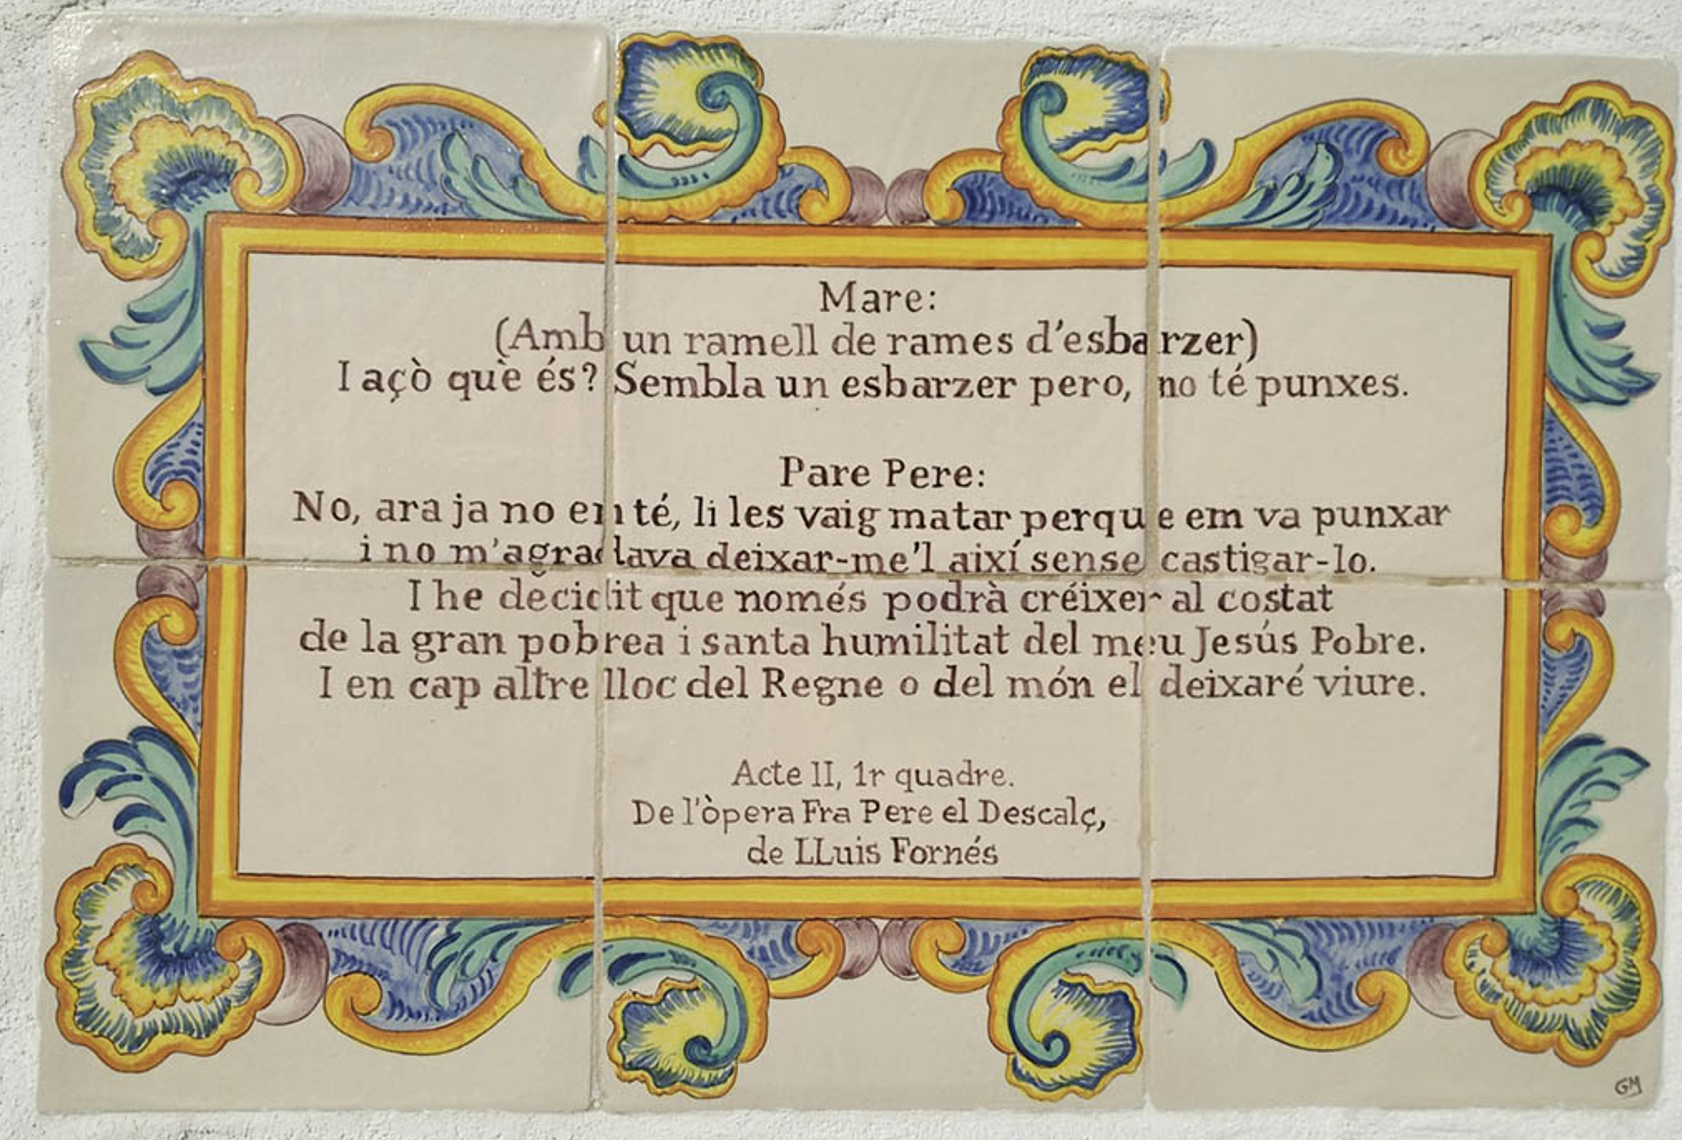 Mare:
(Amb un ramell de rames d'esbarzer)
I açò què és? Sembla un esbarzer pero, no té punxes.
Pare Pere:
No, ara ja no en té, li les vaig matar perque em va punxar
i no m'agradava deixar-me'l així sense castigar-lo.
I he decidit que només podrà créixer al costat
de la gran pobrea i santa humilitat del meu Jesús Pobre.
I en cap altre lloc del Regne o del món el deixaré viure.
Acte II, 1r quadre.
De l'òpera Fra Pere el Descalç,
de LLuis Fornés
GM